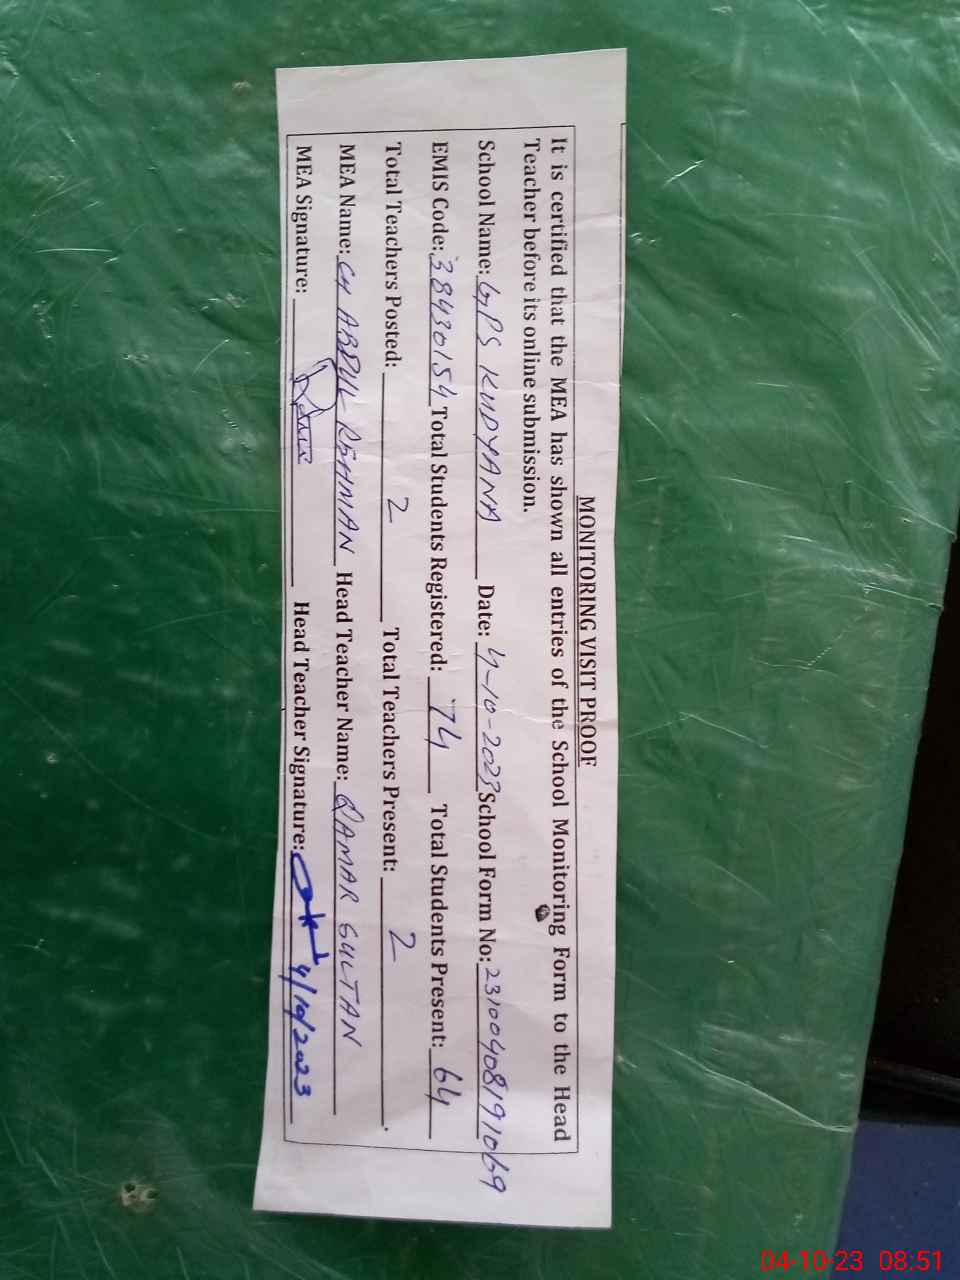 MONITORING VISIT PROOF
It is certified that the MEA has shown all entries of the School Monitoring Form to the Head
Teacher before its online submission.
School Name: GPS KUDYANA Date: 4-10-2023 School Form No: 23100408191069
EMIS Code: 38430154 Total Students Registered: 74 Total Students Present: 64
Total Teachers Posted: 2 Total Teachers Present: 2.
MEA Name: CH ABDUL REHMAN Head Teacher Name: QAMAR SULTAN
MEA Signature: Head Teacher Signature: 4/10/2023
04-10-23 08:51